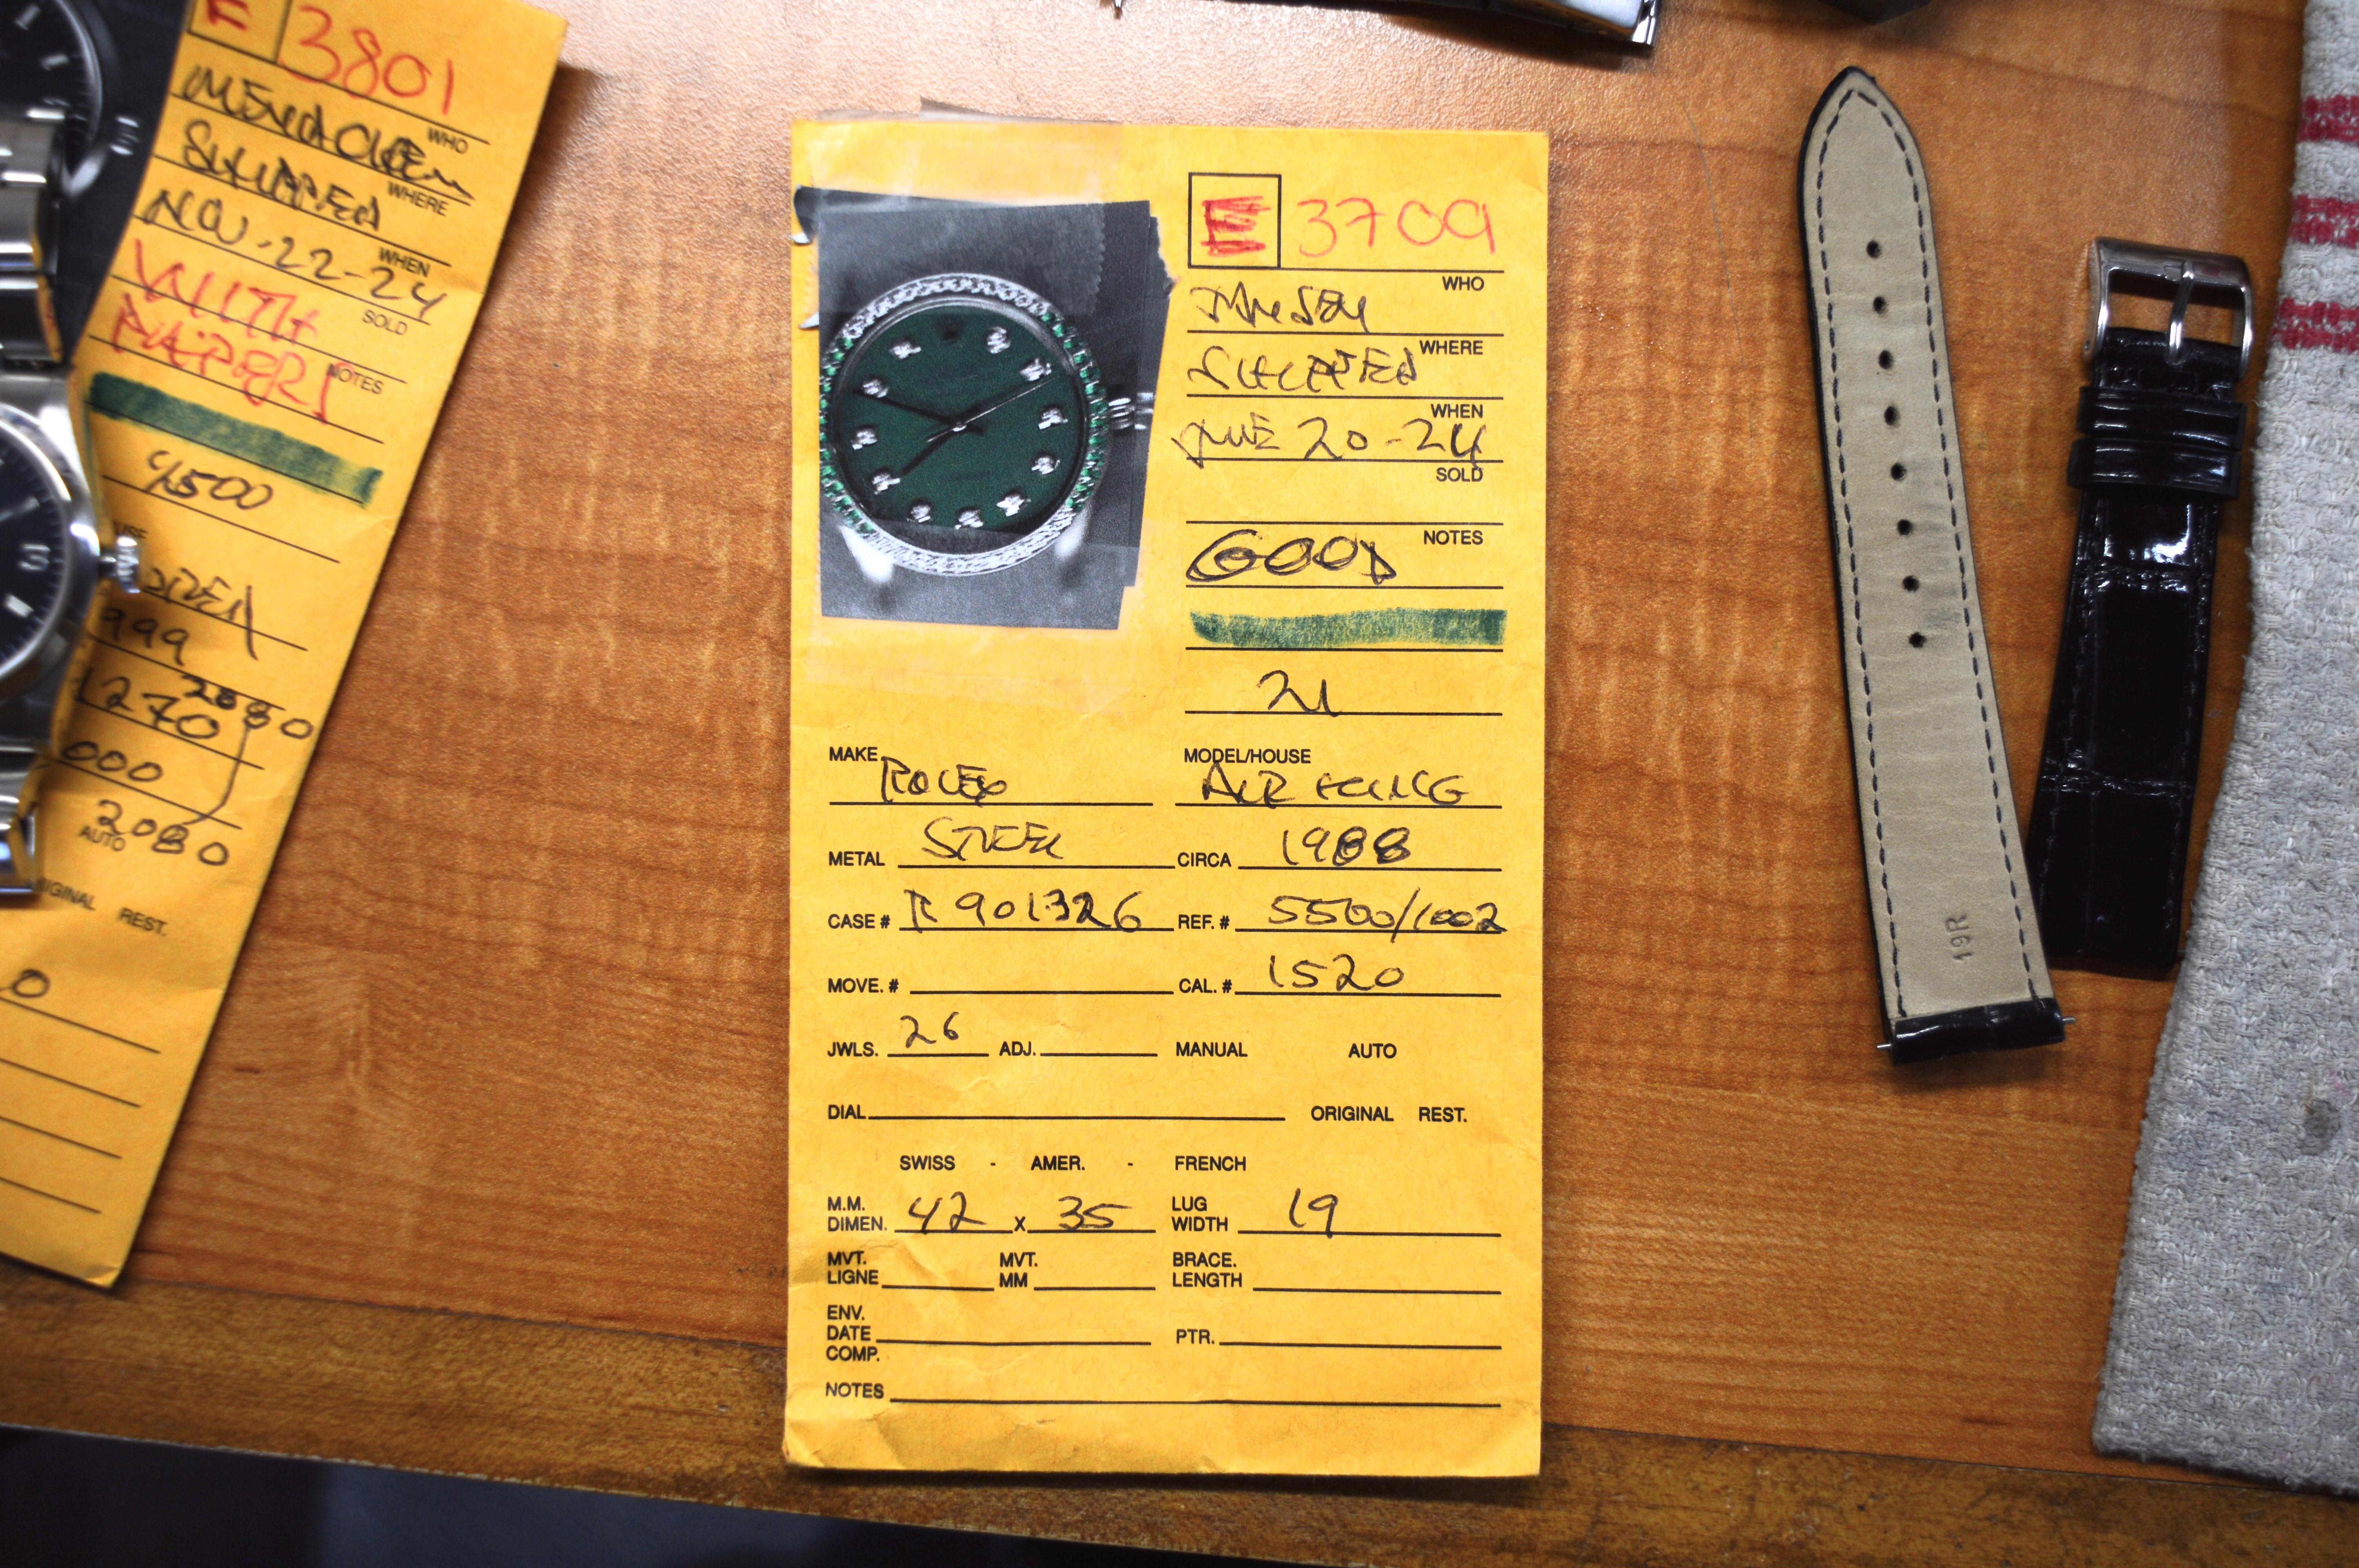 E 3801
WHO
SHIPPED
WHERE
NOV-22-24
WHEN
WITH
SOLD
PAPERS
NOTES
4500
999
1270
2080
000
2080
AUTO
IGINAL REST.
0
E 3709
WHO
SHIPPED
WHERE
WHEN
JUNE 20-24
SOLD
NOTES
GOOD
21
MAKE ROLEX
MODEL/HOUSE AIR KING
METAL STEEL
CIRCA 1988
CASE # R901326
REF. # 5500/1002
MOVE. #
CAL. # 1520
JWLS. 26 ADJ.
MANUAL AUTO
DIAL ORIGINAL REST.
SWISS - AMER. - FRENCH
M.M.
DIMEN. 42 X 35
LUG
WIDTH 19
MVT.
LIGNE
MVT.
MM
BRACE.
LENGTH
ENV.
DATE
COMP.
PTR.
NOTES
19R